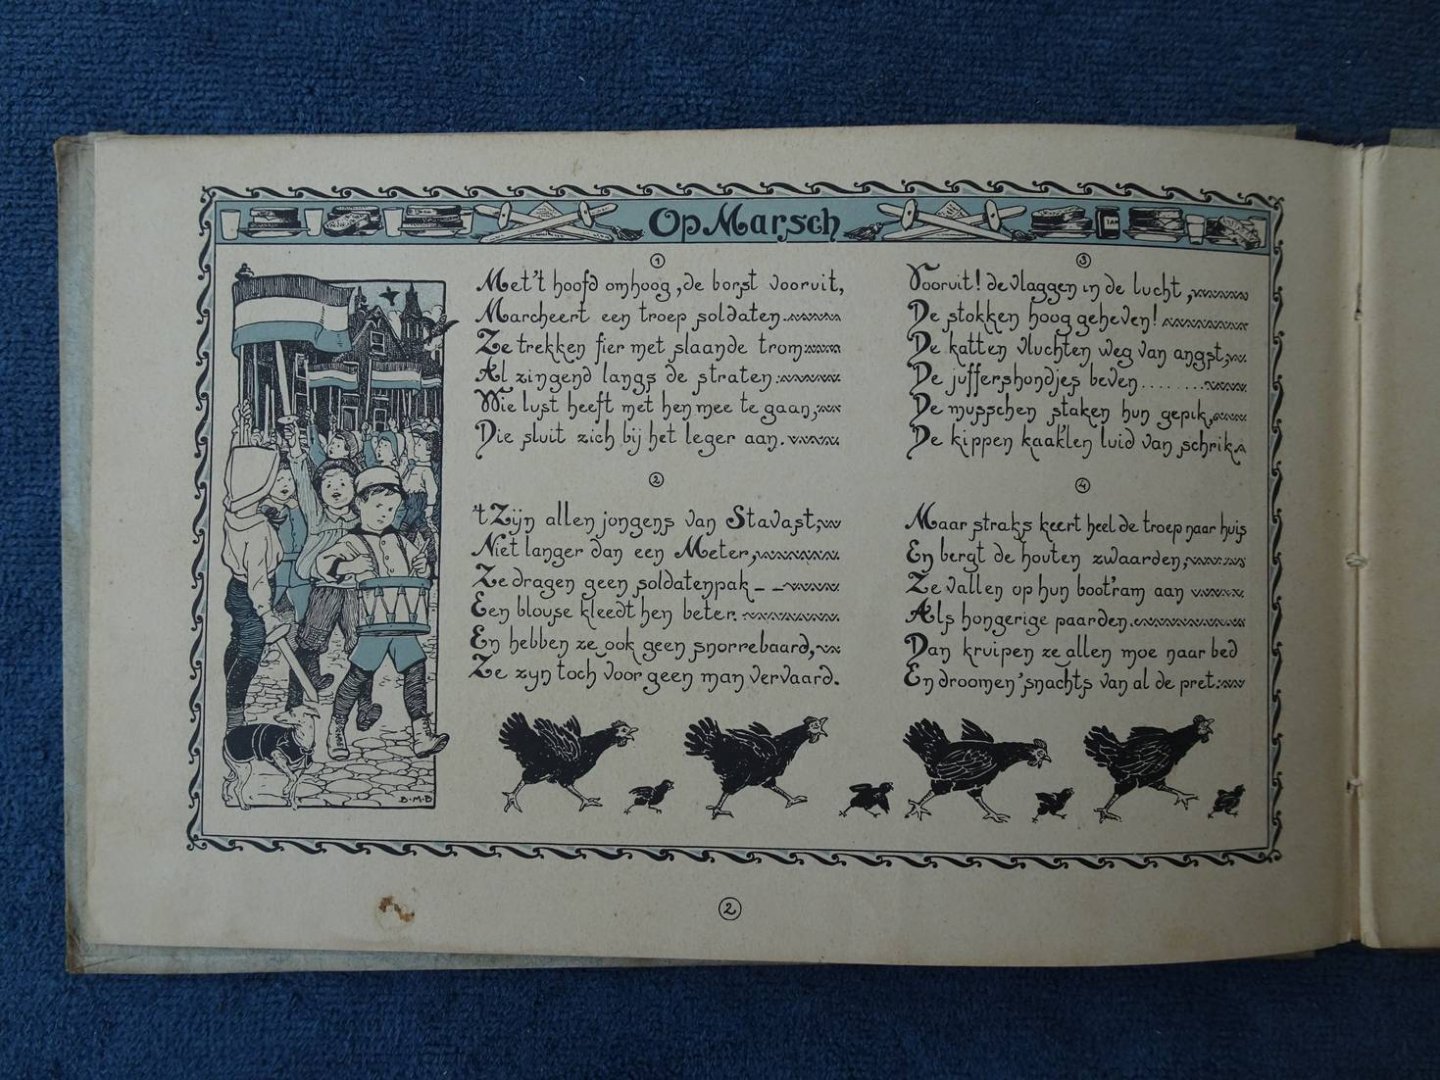 Op Marsch
1
Met 't hoofd omhoog, de borst vooruit,
Marcheert een troep soldaten.
Ze trekken fier met slaande trom
Al zingend langs de straten:
Wie lust heeft met hen mee te gaan,
Die sluit zich bij het leger aan.
2
't Zijn allen jongens van Stavast,
Niet langer dan een Meter,
Ze dragen geen soldatenpak _ _
Een blouse kleedt hen beter.
En hebben ze ook geen snorrebaard,
Ze zyn toch voor geen man vervaard.
3
Vooruit! de vlaggen in de lucht,
De stokken hoog geheven!
De katten vluchten weg van angst,
De juffershondjes beven........
De musschen staken hun gepik,
De kippen kaak'len luid van schrik
4
Maar straks keert heel de troep naar huis
En bergt de houten zwaarden,
Ze vallen op hun boot'ram aan
Als hongerige paarden.
Dan kruipen ze allen moe naar bed
En droomen 'snachts van al de pret.
B.M.B
2